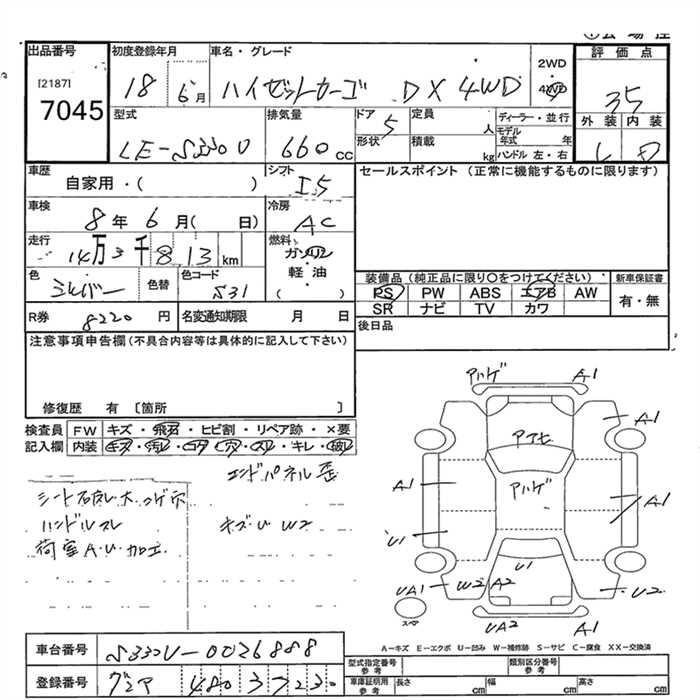 ①会場控
出品番号
[2187]
7045
初度登録年月
18 6月
車名・グレード
ハイゼットカーゴ DX 4WD
2WD
4WD
評価点
3.5
外装 内装
D
型式
LE-S330V
排気量
660 cc
ドア
5
形状
定員
人
積載
kg
ディーラー・並行
モデル年式 年
ハンドル 左・右
車歴
自家用・( )
シフト
I5
セールスポイント (正常に機能するものに限ります)
車検
8年 6月 ( 日)
冷房
AC
走行
14万3千813km
燃料
ガソリン
軽油
( )
色
シルバー
色替
色コード
S31
装備品 (純正品に限り○をつけてください)
PS PW ABS エアB AW
SR ナビ TV カワ
新車保証書
有・無
R券 8220円
名変通知期限 月 日
後日品
注意事項申告欄(不具合内容等は具体的に記入して下さい)
修復歴 有 〔箇所 〕
検査員記入欄
FW キズ・飛石・ヒビ割・リペア跡・×要
内装 キズ・汚レ・コゲ・穴・スレ・キレ・破レ
エンドパネル歪
シート破レ大 コゲ穴
ハンドルスレ
荷室A.U.加工
キズU W2
アハゲ A1
A1
アサビ
アハゲ
A1
A1
U1
U1
UA1 W2 A2
U2
UA2 A1
スペア
A-キズ E-エクボ U-凹み W-補修跡 S-サビ C-腐食 XX-交換済
車台番号 S330V-0026888
登録番号 480 3723
型式指定番号 参考
類別区分番号 参考
車庫証明用 参考
長さ cm
幅 cm
高さ cm